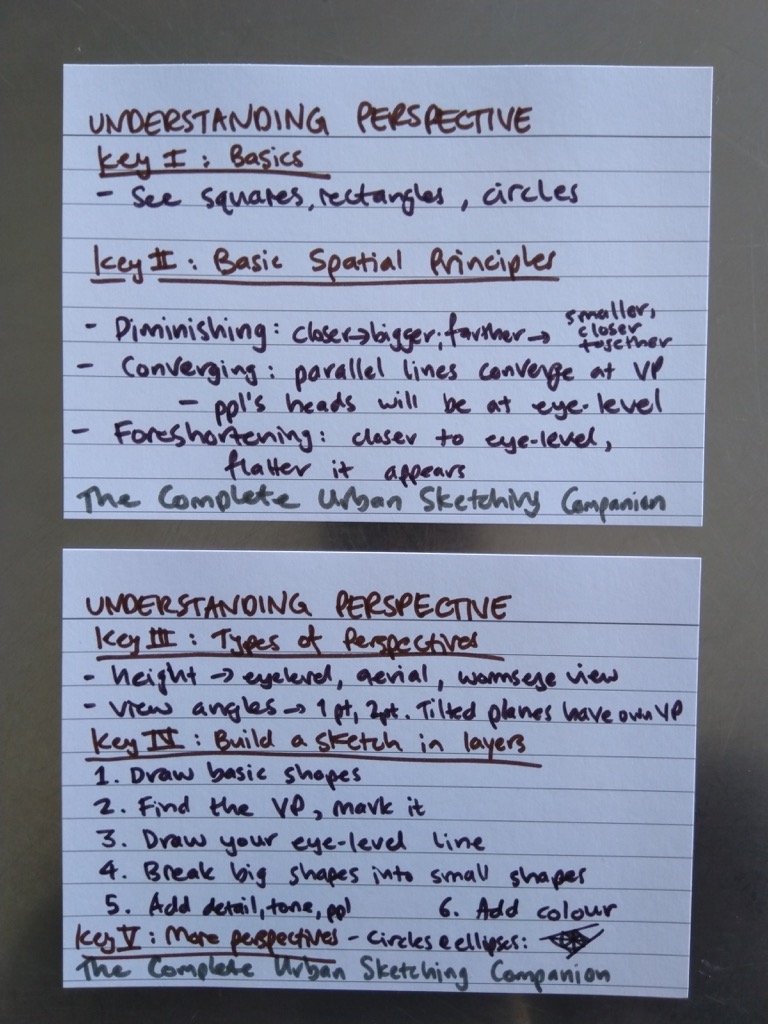 UNDERSTANDING PERSPECTIVE
Key I : Basics
- See squares, rectangles, circles
Key II : Basic Spatial Principles
- Diminishing: closer→bigger; farther→ smaller, closer together
- Converging: parallel lines converge at VP
- ppl's heads will be at eye-level
- Foreshortening: closer to eye-level,
flatter it appears
The Complete Urban Sketching Companion
UNDERSTANDING PERSPECTIVE
Key III : Types of Perspectives
- height → eyelevel, aerial, wormseye view
- View angles → 1pt, 2pt. Tilted planes have own VP
Key IV : Build a sketch in layers
1. Draw basic shapes
2. Find the VP, mark it
3. Draw your eye-level line
4. Break big shapes into small shapes
5. Add detail, tone, ppl 6. Add colour
Key V : More perspectives - Circles & ellipses:
The Complete Urban Sketching Companion